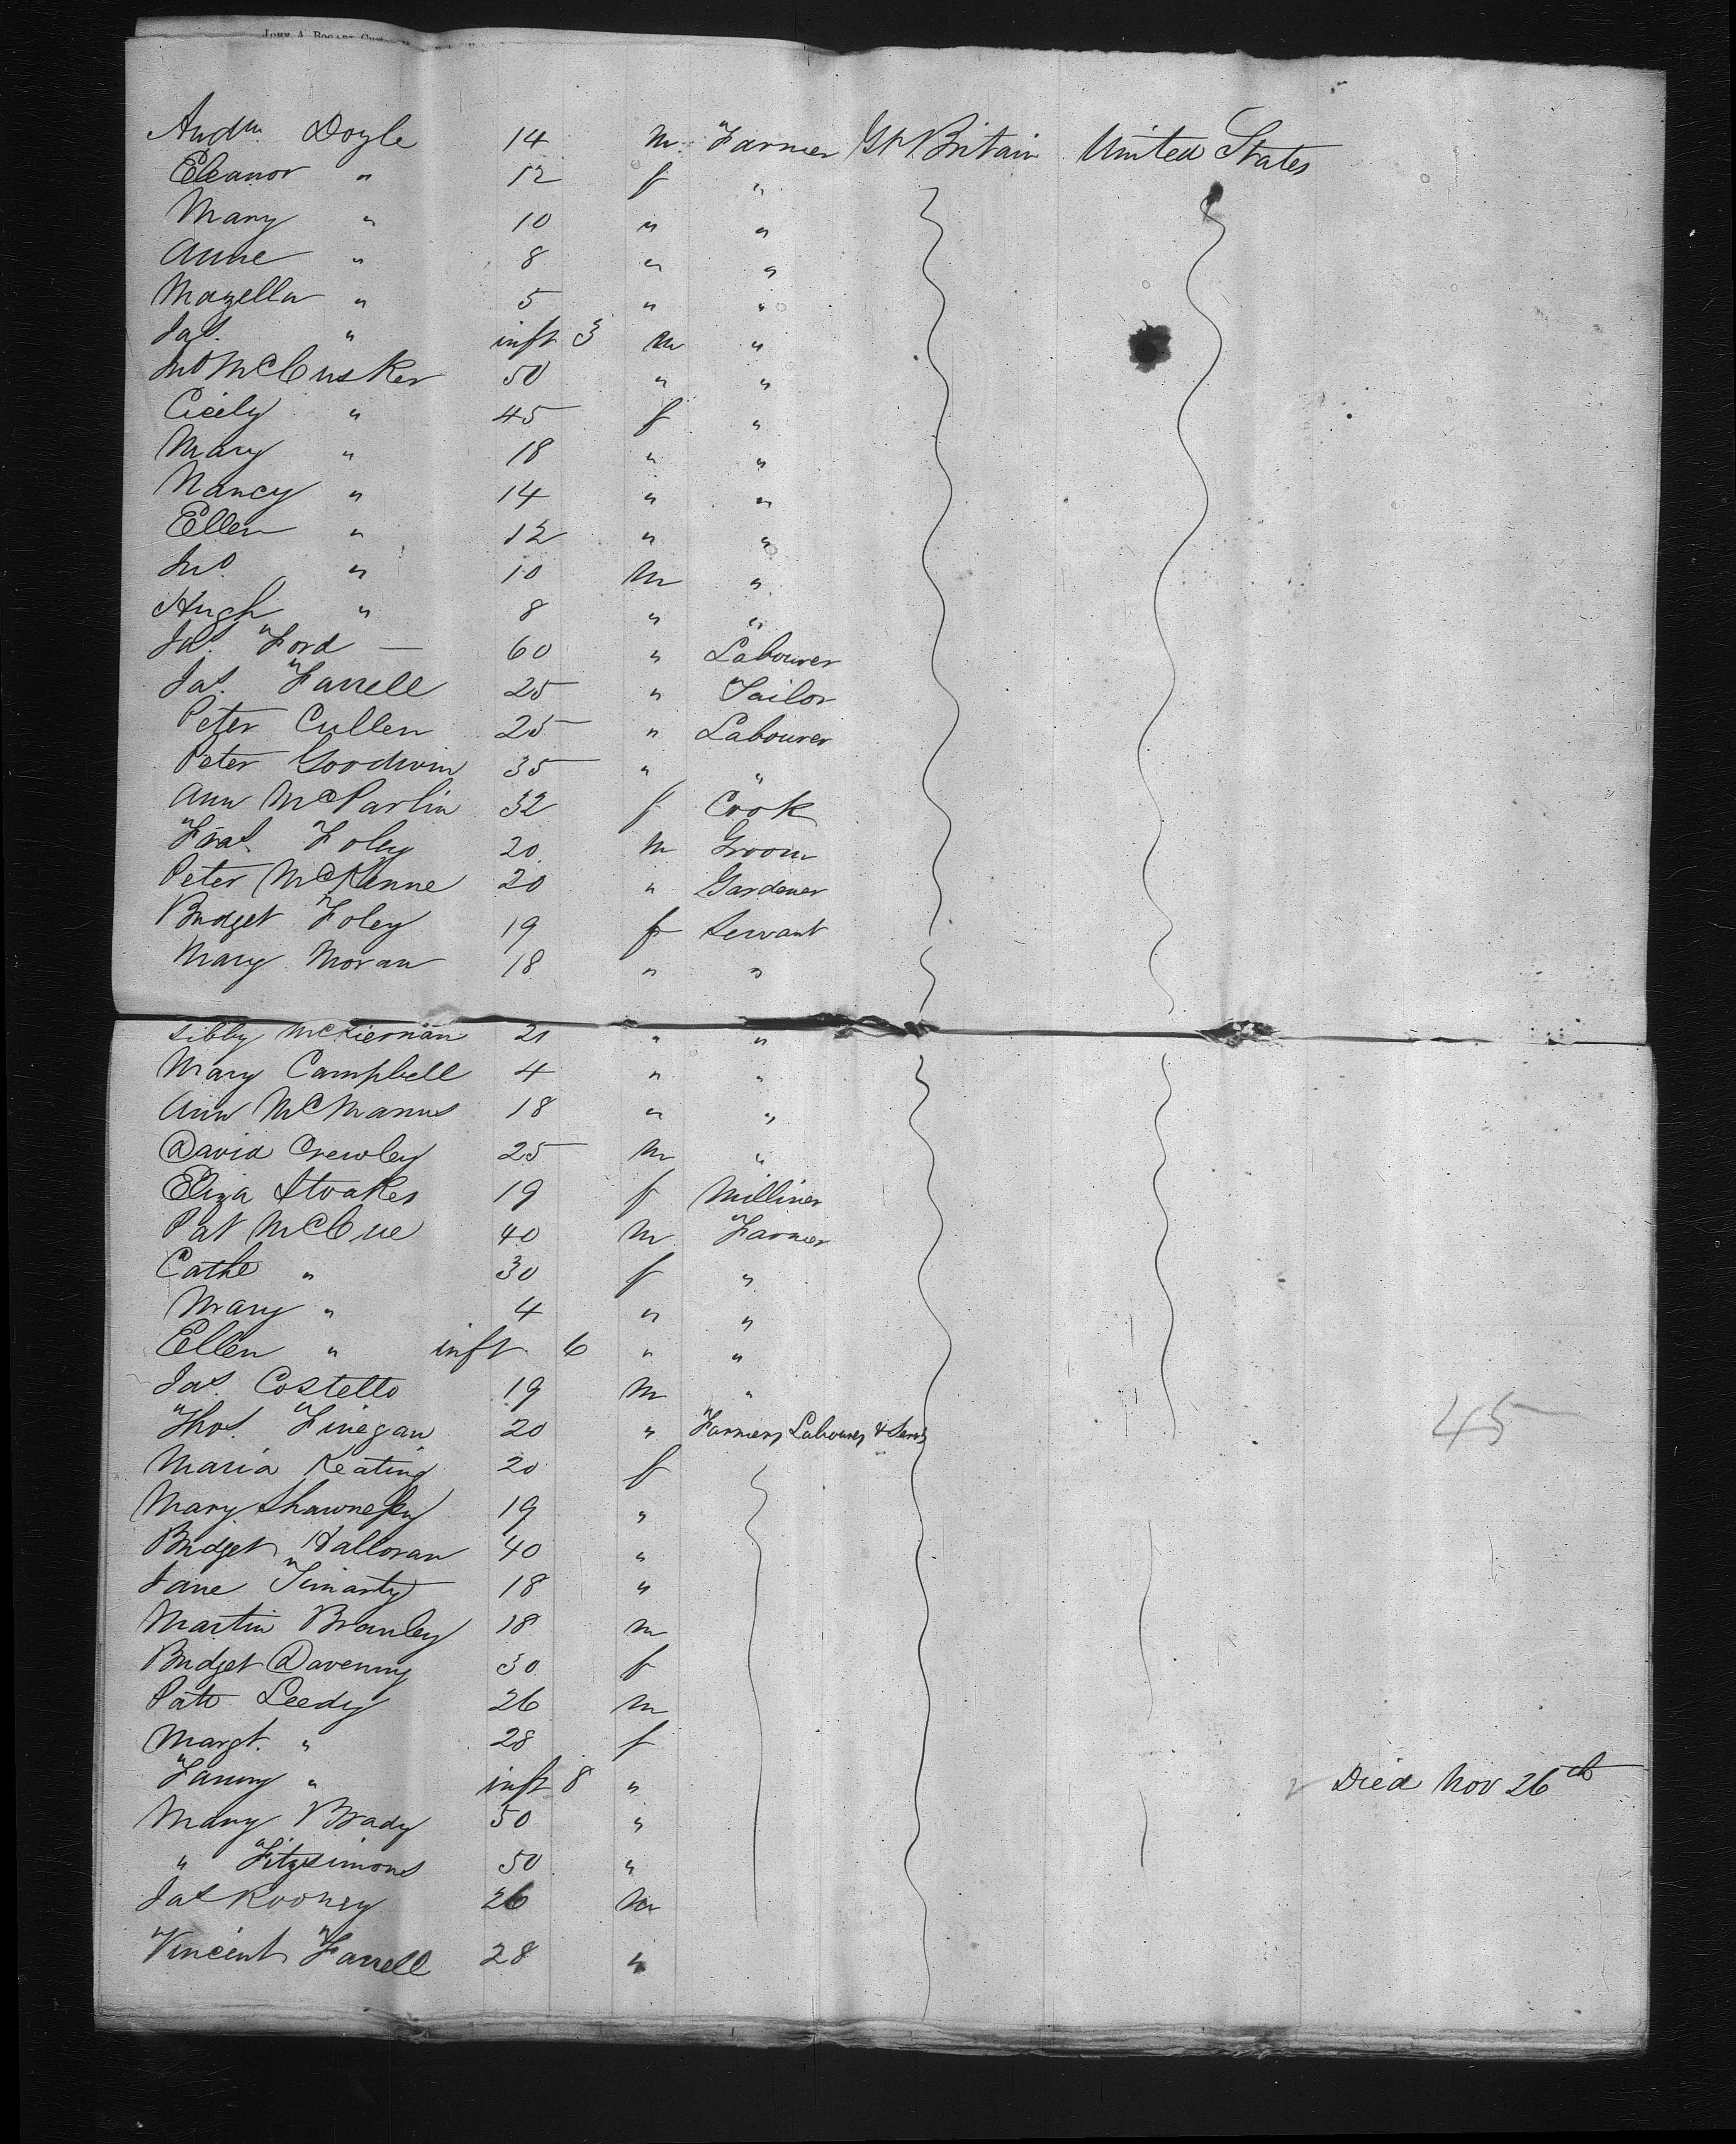 JOHN A. BOGART
Andw. Doyle 14 m Farmer Gt Britain United States
Eleanor " 12 f "
Mary " 10 " "
Anne " 8 " "
Mazella " 5 " "
Jas. " inft 3 m "
Jno McCusker 50 " "
Cicily " 45 f "
Mary " 18 " "
Nancy " 14 " "
Ellen " 12 " "
Jno. " 10 m "
Hugh " 8 " "
Jas. Ford — 60 " Labourer
Jas. Farrell 25 " Tailor
Peter Cullen 25 " Labourer
Peter Goodwin 35 " "
Ann McParlin 32 f Cook
Fras. Foley 20 m Groom
Peter McKenne 20 " Gardener
Bridget Foley 19 f Servant
Mary Moran 18 " "
Sibby McKiernan 21 " "
Mary Campbell 4 " "
Ann McManus 18 " "
David Crewley 25 m "
Eliza Stoakes 19 f Milliner
Pat McCue 40 m Farmer
Cathe " 30 f "
Mary " 4 " "
Ellen " inft 6 " "
Jas. Costello 19 m "
Thos. Finegan 20 " Farmers, Labourers & Servts
45
Maria Keating 20 f
Mary 19 "
Bridget Halloran 40 "
Jane 18 "
Martin Branley 18 m
Bridget Davenny 30 f
Patt Leedy 26 m
Margt. " 28 f
Fanny " inft 8 " Died Nov 26th
Mary Brady 50 "
" Fitzsimons 50 "
Jas Rooney 26 m
Vincent Farrell 28 "